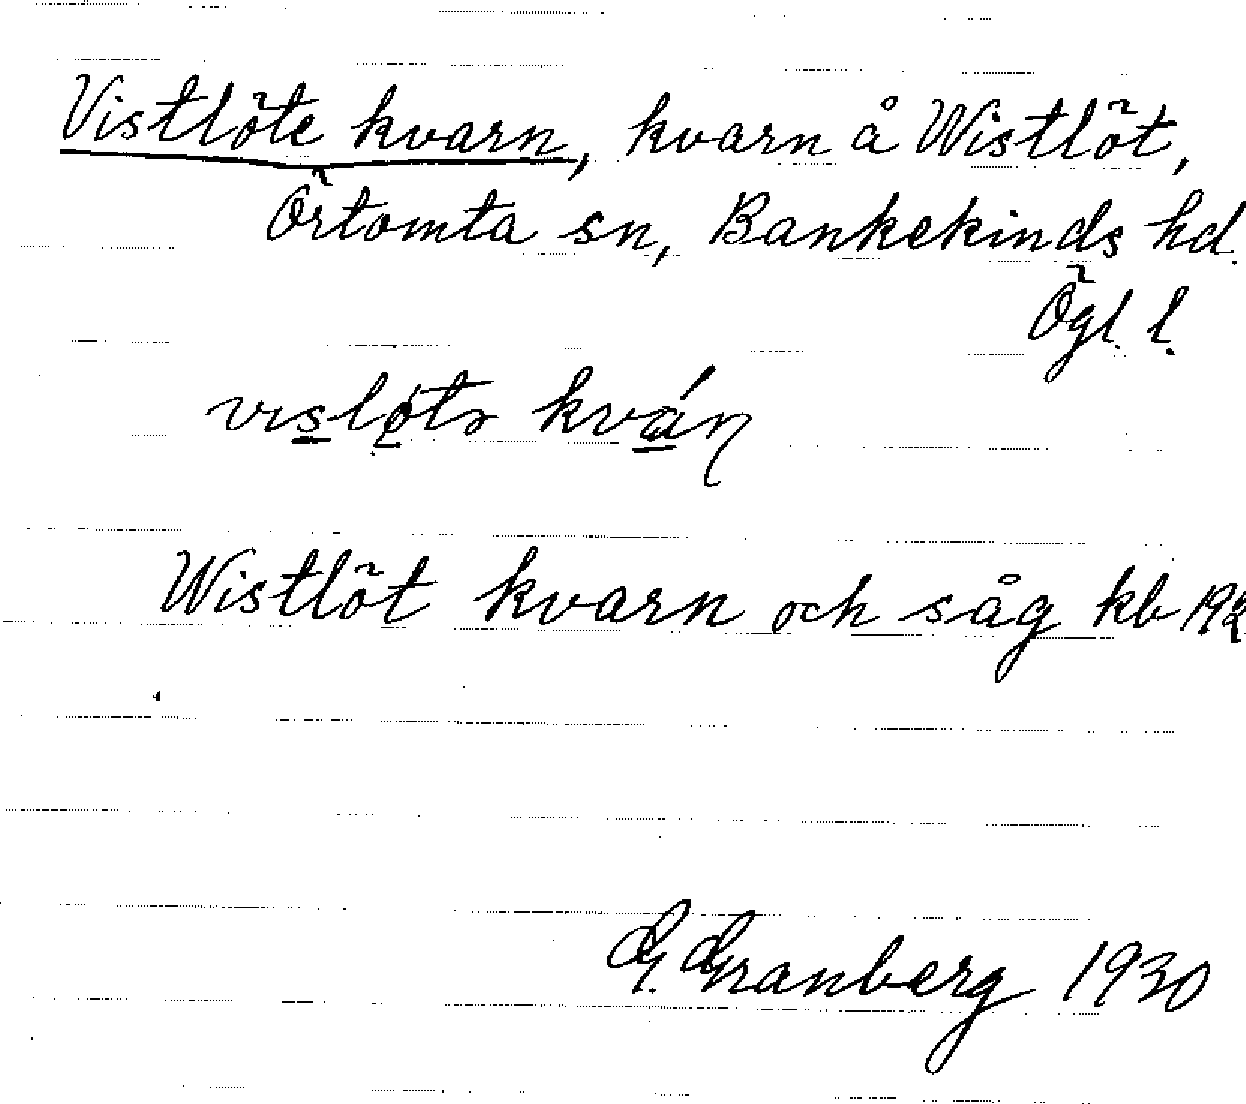 Vistlöte kvarn, kvarn å Wistlöt,
Örtomta sn, Bankekinds hd.
Ögl. l.
kván
Wistlöt kvarn och såg kb
G. Granberg 1930